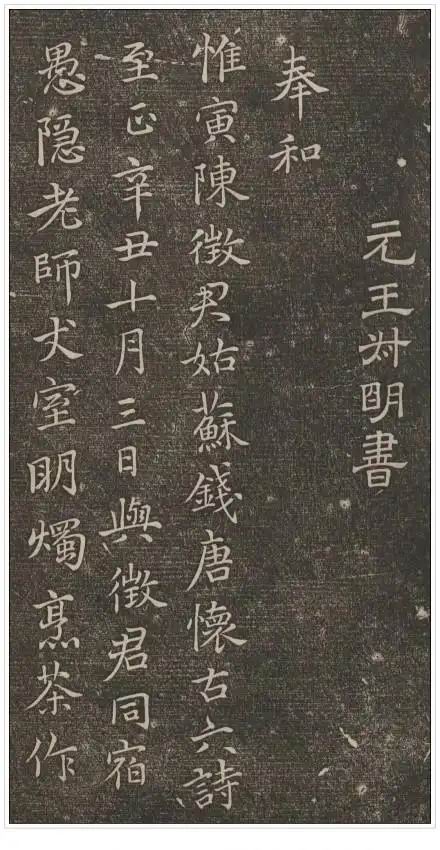 元王叔明書
奉和
惟寅陳徵君姑蘇錢唐懷古六詩
至正辛丑十月三日與徵君同宿
愚隐老師丈室明燭烹茶作